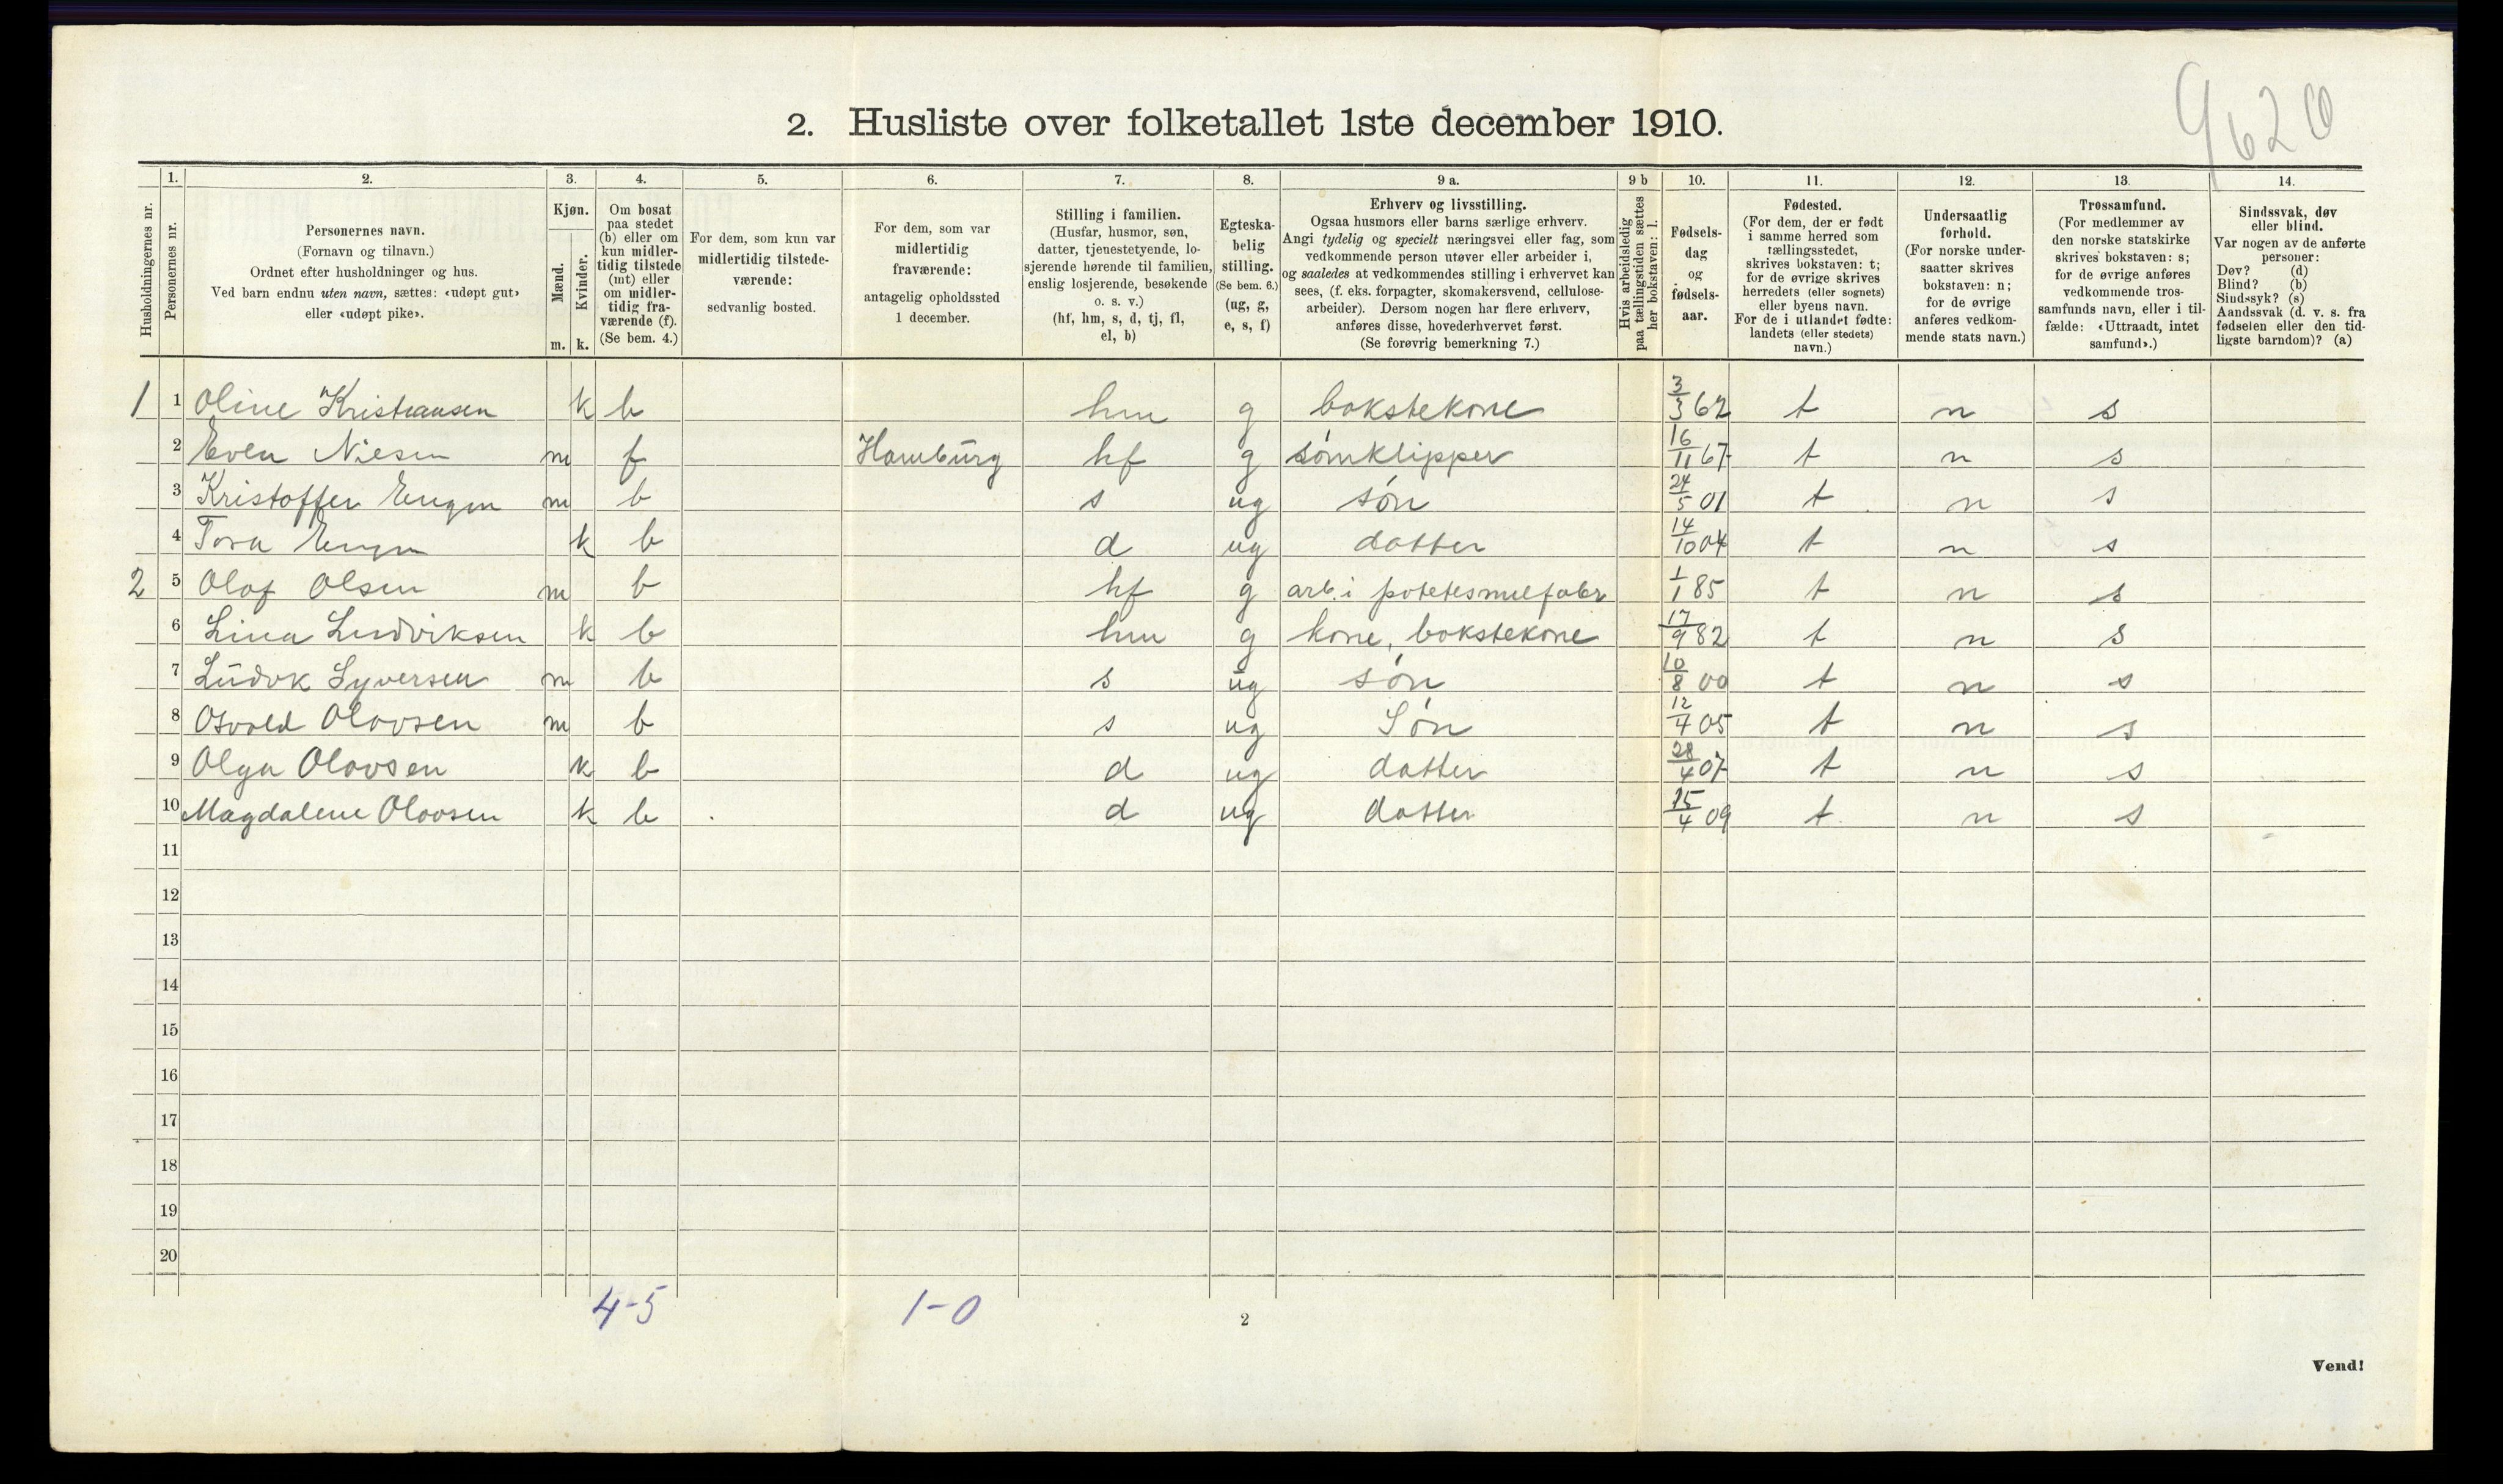 9620
2. Husliste over folketallet 1ste december 1910.
Husholdningernes nr.
1.
Personernes nr.
2.
Personernes navn.
(Fornavn og tilnavn.)
Ordnet efter husholdninger og hus.
Ved barn endnu uten navn, sættes: «udøpt gut»
eller «udøpt pike».
3.
Kjøn.
Mænd.
Kvinder.
m. k.
4.
Om bosat
paa stedet
(b) eller om
kun midler-
tidig tilstede
(mt) eller
om midler-
tidig fra-
værende (f).
(Se bem. 4.)
5.
For dem, som kun var
midlertidig tilstede-
værende:
sedvanlig bosted.
6.
For dem, som var
midlertidig
fraværende:
antagelig opholdssted
1 december.
7.
Stilling i familien.
(Husfar, husmor, søn,
datter, tjenestetyende, lo-
sjerende hørende til familien,
enslig losjerende, besøkende
o. s. v.)
(hf, hm, s, d, tj, fl,
el, b)
8.
Egteska-
belig
stilling.
(Se bem. 6.)
(ug, g,
e, s, f)
9 a.
Erhverv og livsstilling.
Ogsaa husmors eller barns særlige erhverv.
Angi tydelig og specielt næringsvei eller fag, som
vedkommende person utøver eller arbeider i,
og saaledes at vedkommendes stilling i erhvervet kan
sees, (f. eks. forpagter, skomakersvend, cellulose-
arbeider). Dersom nogen har flere erhverv,
anføres disse, hovederhvervet først.
(Se forøvrig bemerkning 7.)
9 b
Hvis arbeidsledig
paa tællingstiden sættes
her bokstaven: l.
10.
Fødsels-
dag
og
fødsels-
aar.
11.
Fødested.
(For dem, der er født
i samme herred som
tællingsstedet,
skrives bokstaven: t;
for de øvrige skrives
herredets (eller sognets)
eller byens navn.
For de i utlandet fødte:
landets (eller stedets)
navn.)
12.
Undersaatlig
forhold.
(For norske under-
saatter skrives
bokstaven: n;
for de øvrige
anføres vedkom-
mende stats navn.)
13.
Trossamfund.
(For medlemmer av
den norske statskirke
skrives bokstaven: s;
for de øvrige anføres
vedkommende tros-
samfunds navn, eller i til-
fælde: «Uttraadt, intet
samfund».)
14.
Sindssvak, døv
eller blind.
Var nogen av de anførte
personer:
Døv? (d)
Blind? (b)
Sindssyk? (s)
Aandssvak (d. v. s. fra
fødselen eller den tid-
ligste barndom)? (a)
1 1 Oline Kristiansen k b hm g bakstekone 3/3 62 t n s
2 Even Nilsen m f Hamburg hf g sømklipper 16/11 67 t n s
3 Kristoffer Engen m b s ug søn 24/5 01 t n s
4 Tora Engen k b d ug datter 14/10 04 t n s
2 5 Olaf Olsen m b hf g arb. i potetesmelfabr 1/1 85 t n s
6 Lina Ludviksen k b hm g kone, bakstekone 17/9 82 t n s
7 Ludvk Syversen m b s ug søn 10/8 00 t n s
8 Osvald Olavsen m b s ug Søn 12/4 05 t n s
9 Olga Olavsen k b d ug datter 28/4 07 t n s
10 Magdalene Olavsen k b d ug datter 25/4 09 t n s
11
12
13
14
15
16
17
18
19
20
4-5 1-0
2
Vend!